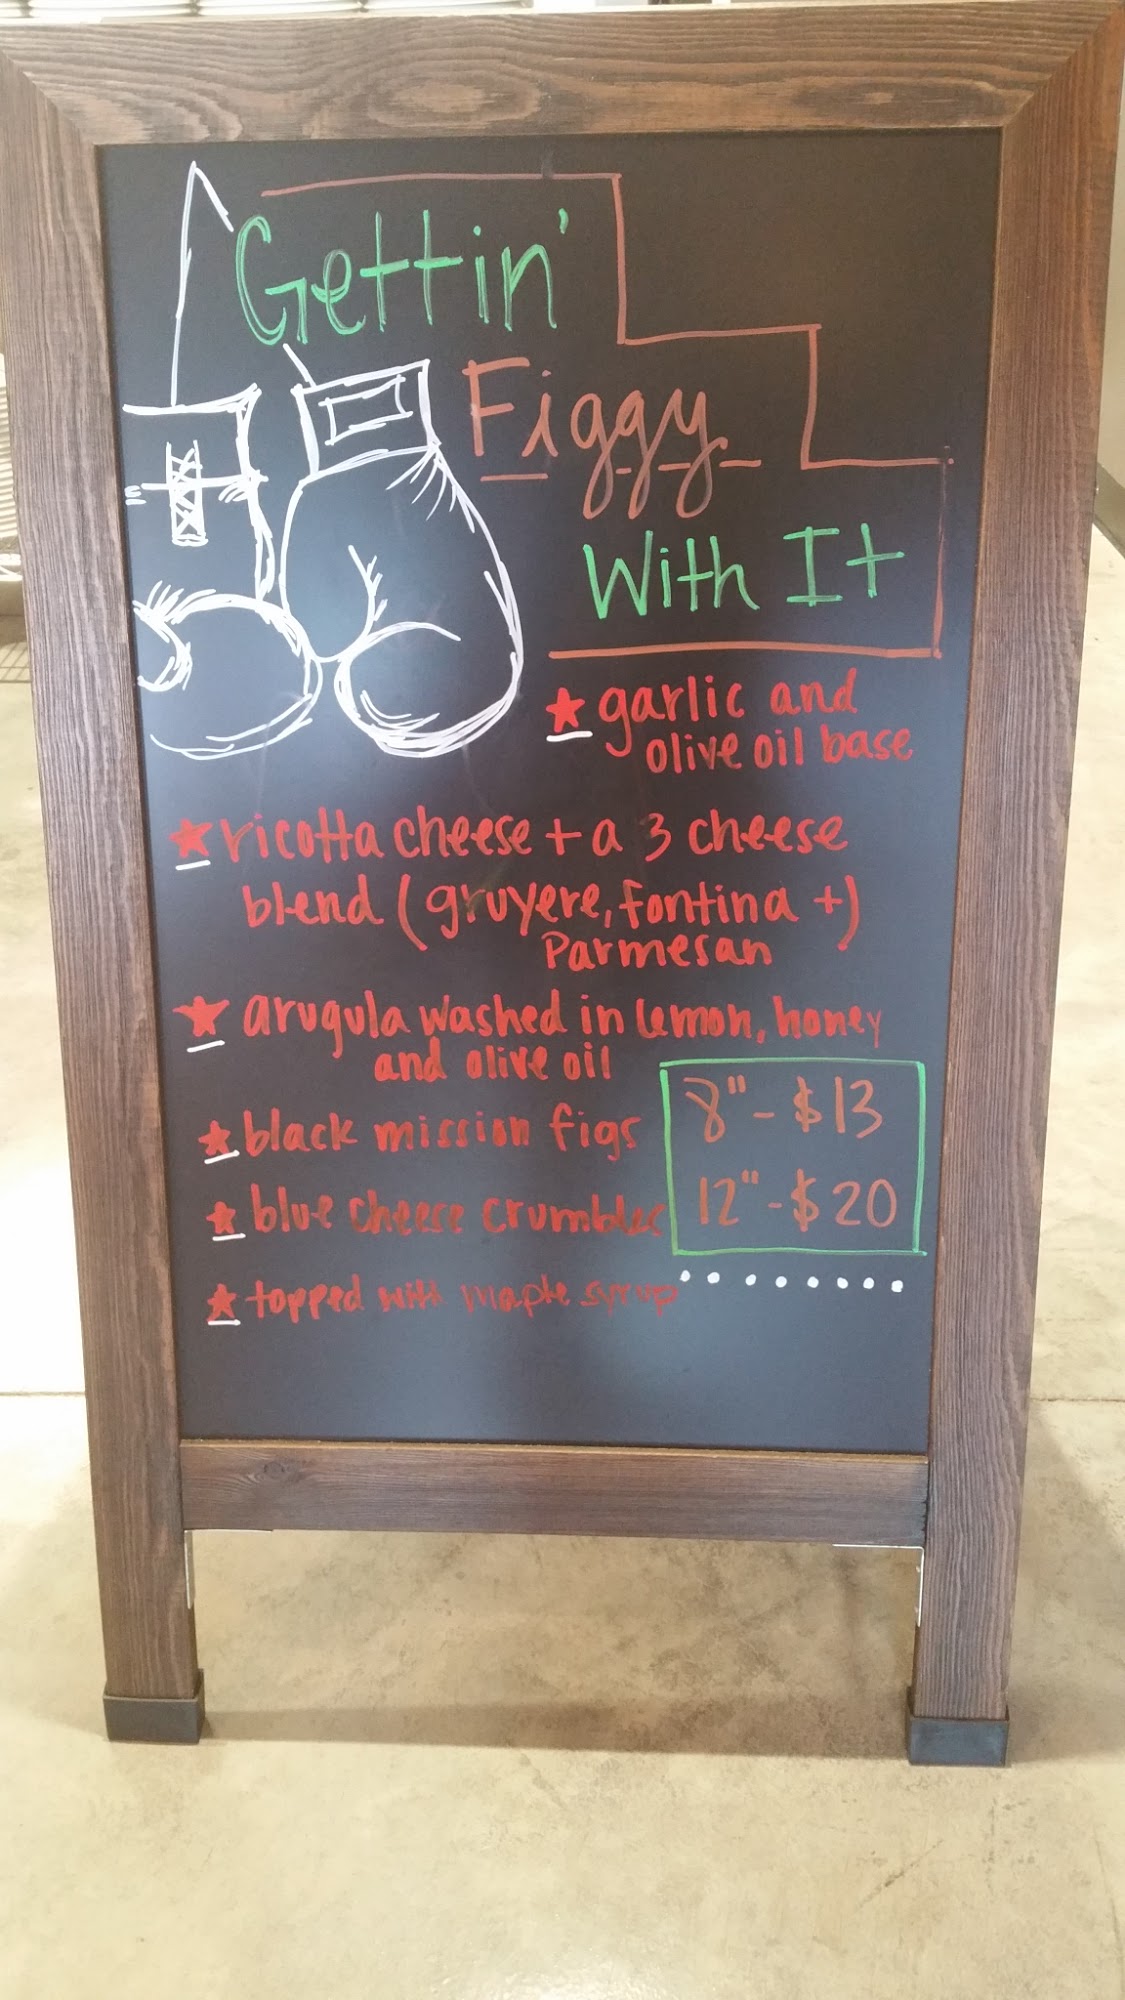 Gettin'
Figgy
With It
garlic and
olive oil base
ricotta cheese + a 3 cheese
blend (gruyere, fontina +)
Parmesan
arugula washed in lemon, honey
and olive oil
black mission figs
8" - $13
blue cheese crumbles
12" - $20
topped with maple syrup